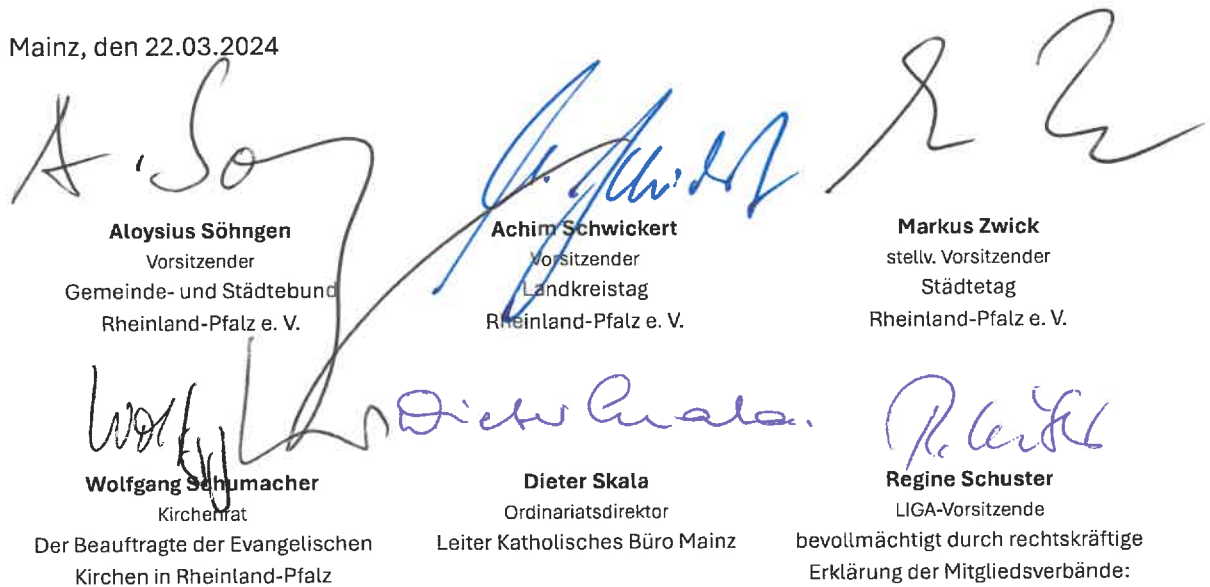 Mainz, den 22.03.2024
Aloysius Söhngen
Vorsitzender
Gemeinde- und Städtebund
Rheinland-Pfalz e. V.
Achim Schwickert
Vorsitzender
Landkreistag
Rheinland-Pfalz e. V.
Markus Zwick
stellv. Vorsitzender
Städtetag
Rheinland-Pfalz e. V.
Dieter Skala.
Wolfgang Schumacher
Kirchenrat
Der Beauftragte der Evangelischen
Kirchen in Rheinland-Pfalz
Dieter Skala
Ordinariatsdirektor
Leiter Katholisches Büro Mainz
Regine Schuster
LIGA-Vorsitzende
bevollmächtigt durch rechtskräftige
Erklärung der Mitgliedsverbände: